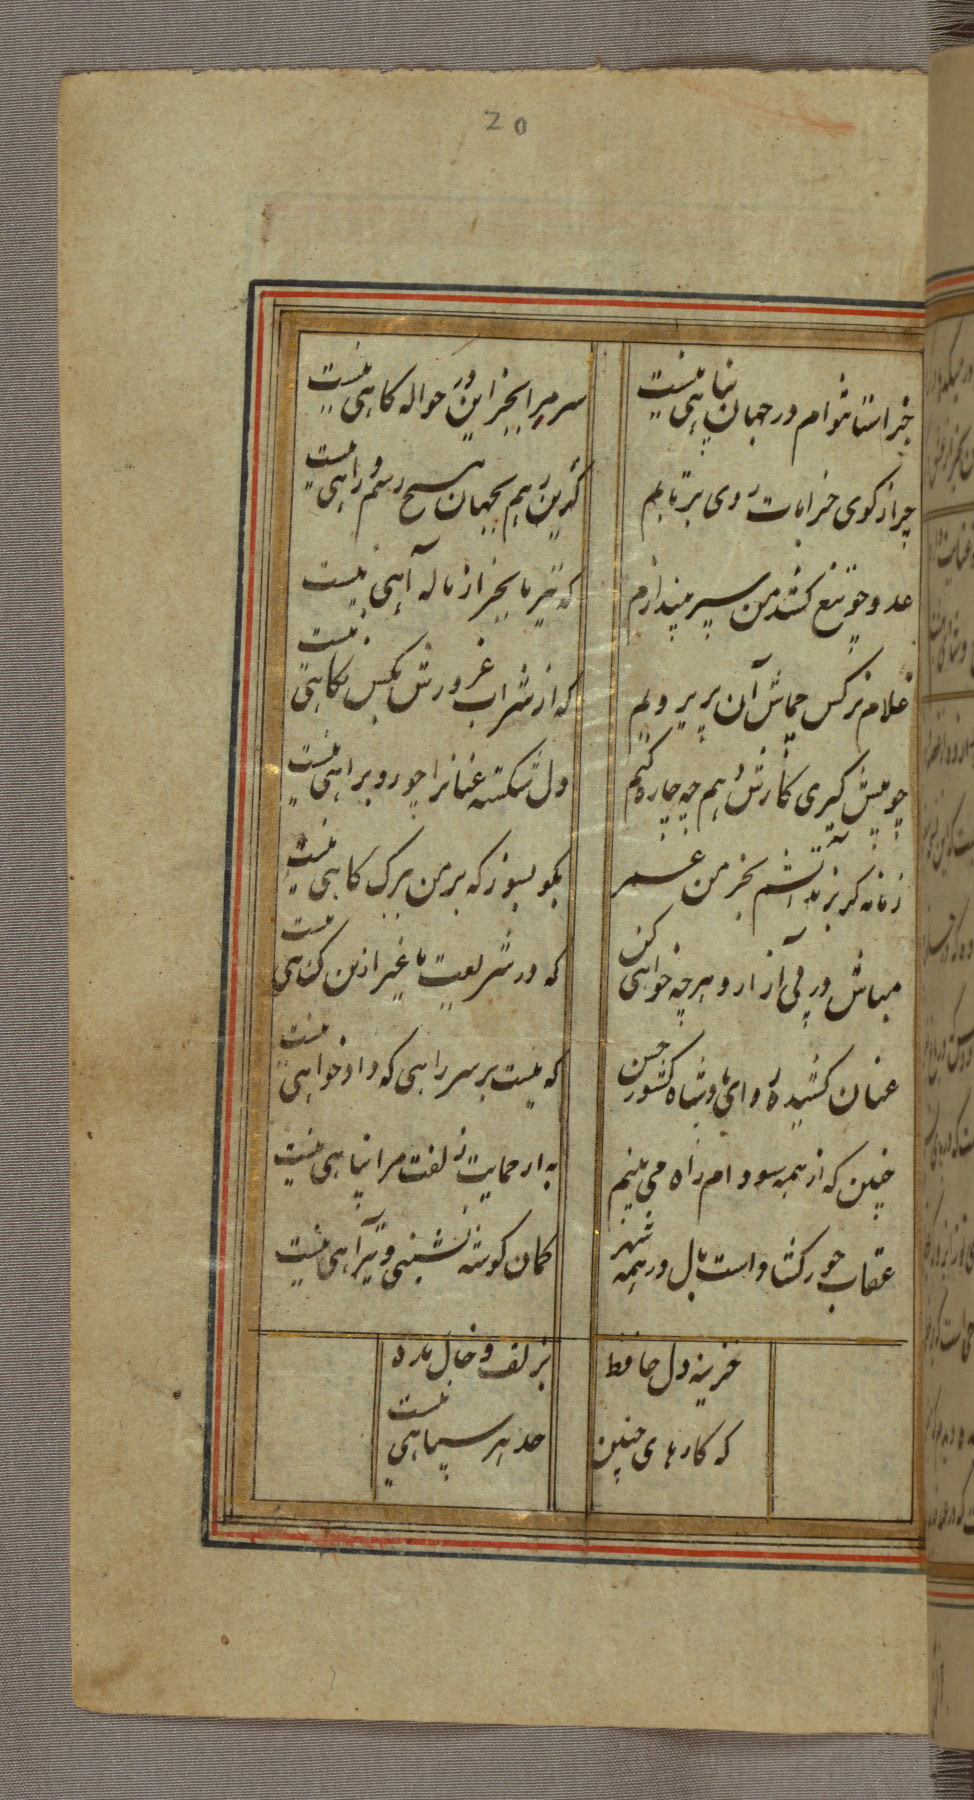 20
جز آستانتوام در جهان پناهی نیست
سر مرا بجز این در حواله کاهی نیست
چرا ز کوی خرابات روی برتابم
کزین رهم بجهان هیچ رسم و راهی نیست
عدو چو تیغ کشد من سپر بیندازم
که تیر ما بجز از ناله آهی نیست
غلام نرکس جماش آن پری
که از شراب غرورش بکس نکاهی نیست
دل شکسته
زمانه کر بزند آتشم بخرمن عمر
بکو بسوز که بر من ببرک کاهی نیست
مباش در پی آزار و هرچه خواهی کن
که در شریعت ما غیر ازین کناهی نیست
عنان کشیده رو ای پادشاه کشور حسن
که نیست بر سر راهی که دادخواهی نیست
چنین که از همه سو دام راه می بینم
به از حمایت زلفت مرا پناهی نیست
عقاب جور کشاد است بال در همه شهر
کمان کوشه نشینی و تیر آهی نیست
خزینه دل حافظ
بزلف و خال مده
که کارهای چنین
حد هر سیاهی نیست